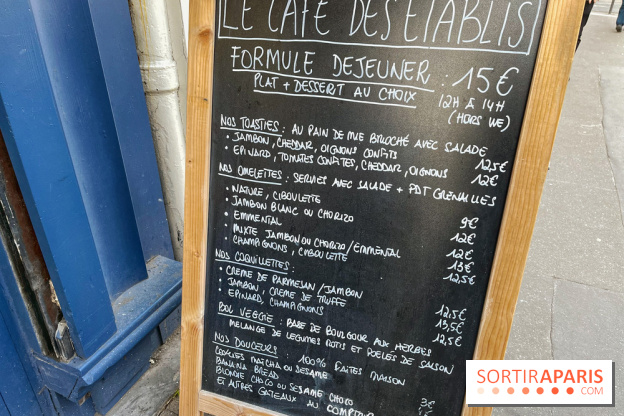 LE CAFÉ DES ETABLIS
FORMULE DEJEUNER : 15€
PLAT + DESSERT AU CHOIX
12H À 14H
(HORS WE)
NOS TOASTIES : AU PAIN DE MIE BRIOCHÉ AVEC SALADE
• JAMBON, CHEDDAR, OIGNONS CONFITS 12,5€
• EPINARD, TOMATES CONFITES, CHEDDAR, OIGNONS 12€
NOS OMELETTES : SERVIES AVEC SALADE + PDT GRENAILLES
• NATURE, CIBOULETTE 9€
• JAMBON BLANC OU CHORIZO 12€
• EMMENTAL 12€
• MIXTE JAMBON OU CHORIZO / EMMENTAL 13€
• CHAMPIGNONS, CIBOULETTE 12,5€
NOS COQUILLETTES :
• CREME DE PARMESAN / JAMBON 12,5€
• JAMBON, CREME DE TRUFFE 13,5€
• EPINARD, CHAMPIGNONS 12,5€
BOL VEGGIE : BASE DE BOULGOUR AUX HERBES
MELANGE DE LEGUMES ROTIS ET POELÉS DE SAISON
NOS DOUCEURS : 100% FAITES MAISON
COOKIES MATCHA OU SESAME 3€
BANANA BREAD
BLONDIE CHOCO OU SESAME CHOCO
ET AUTRES GATEAUX AU COMPTOIR
SORTIRAPARIS
.COM